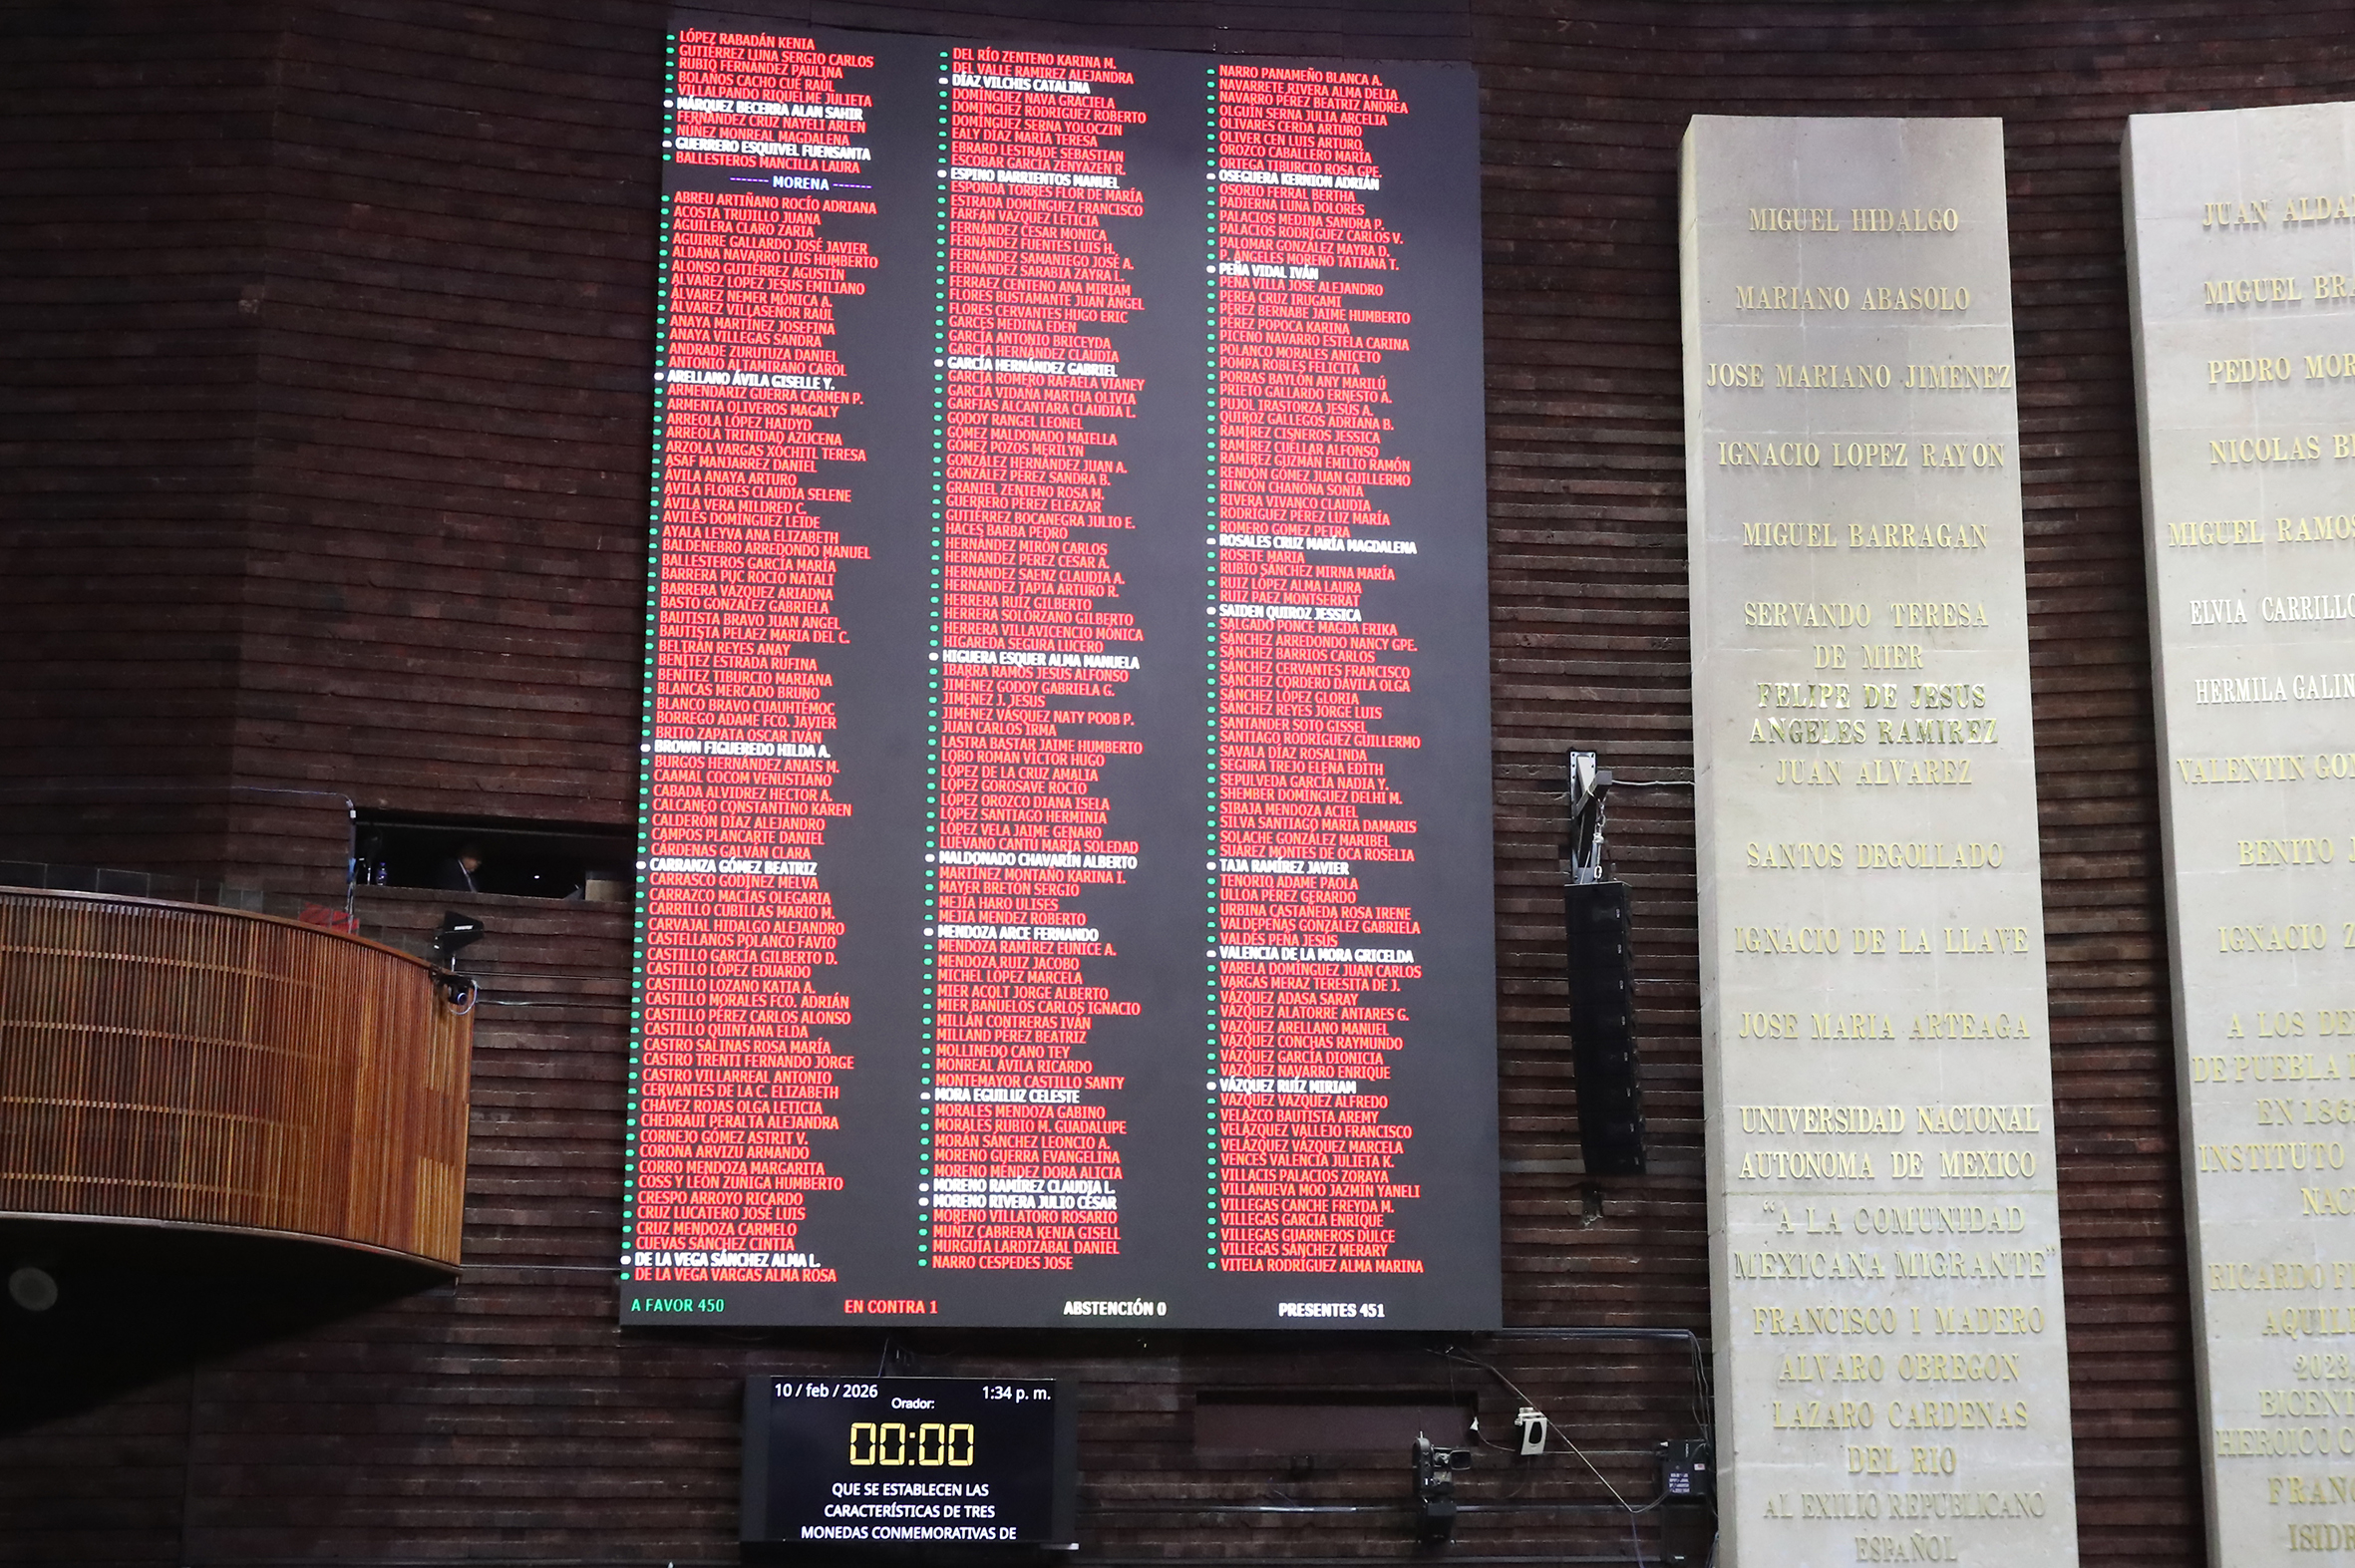 LÓPEZ RABADÁN KENIA
GUTIÉRREZ LUNA SERGIO CARLOS
RUBIO FERNÁNDEZ PAULINA
BOLAÑOS CACHO CUÉ RAÚL
VILLALPANDO RIQUELME JULIETA
MÁRQUEZ BECERRA ALAN SAHIR
FERNÁNDEZ CRUZ NAYELI ARLEN
NÚÑEZ MONREAL MAGDALENA
GUERRERO ESQUIVEL FUENSANTA
BALLESTEROS MANCILLA LAURA
------- MORENA -------
ABREU ARTIÑANO ROCÍO ADRIANA
ACOSTA TRUJILLO JUANA
AGUILERA CLARO ZARIA
AGUIRRE GALLARDO JOSÉ JAVIER
ALDANA NAVARRO LUIS HUMBERTO
ALONSO GUTIÉRREZ AGUSTÍN
ÁLVAREZ LÓPEZ JESÚS EMILIANO
ÁLVAREZ NEMER MÓNICA A.
ÁLVAREZ VILLASEÑOR RAÚL
ANAYA MARTÍNEZ JOSEFINA
ANAYA VILLEGAS SANDRA
ANDRADE ZURUTUZA DANIEL
ANTONIO ALTAMIRANO CAROL
ARELLANO ÁVILA GISELLE Y.
ARMENDÁRIZ GUERRA CARMEN P.
ARMENTA OLIVEROS MAGALY
ARREOLA LÓPEZ HAIDYD
ARREOLA TRINIDAD AZUCENA
ARZOLA VARGAS XÓCHITL TERESA
ASAF MANJARREZ DANIEL
ÁVILA ANAYA ARTURO
ÁVILA FLORES CLAUDIA SELENE
ÁVILA VERA MILDRED C.
AVILÉS DOMÍNGUEZ LEIDE
AYALA LEYVA ANA ELIZABETH
BALDENEBRO ARREDONDO MANUEL
BALLESTEROS GARCÍA MARÍA
BARRERA PUC ROCÍO NATALI
BARRERA VÁZQUEZ ARIADNA
BASTO GONZÁLEZ GABRIELA
BAUTISTA BRAVO JUAN ÁNGEL
BAUTISTA PELÁEZ MARÍA DEL C.
BELTRÁN REYES ANAY
BENÍTEZ ESTRADA RUFINA
BENÍTEZ TIBURCIO MARIANA
BLANCAS MERCADO BRUNO
BLANCO BRAVO CUAUHTÉMOC
BORREGO ADAME FCO. JAVIER
BRITO ZAPATA OSCAR IVÁN
BROWN FIGUEREDO HILDA A.
BURGOS HERNÁNDEZ ANAIS M.
CAAMAL COCOM VENUSTIANO
CABADA ALVIDREZ HÉCTOR A.
CALCÁNEO CONSTANTINO KAREN
CALDERÓN DÍAZ ALEJANDRO
CAMPOS PLANCARTE DANIEL
CÁRDENAS GALVÁN CLARA
CARRANZA GÓMEZ BEATRIZ
CARRASCO GODÍNEZ MELVA
CARRAZCO MACÍAS OLEGARIA
CARRILLO CUBILLAS MARIO M.
CARVAJAL HIDALGO ALEJANDRO
CASTELLANOS POLANCO FAVIO
CASTILLO GARCÍA GILBERTO D.
CASTILLO LÓPEZ EDUARDO
CASTILLO LOZANO KATIA A.
CASTILLO MORALES FCO. ADRIÁN
CASTILLO PÉREZ CARLOS ALONSO
CASTILLO QUINTANA ELDA
CASTRO SALINAS ROSA MARÍA
CASTRO TRENTI FERNANDO JORGE
CASTRO VILLARREAL ANTONIO
CERVANTES DE LA C. ELIZABETH
CHÁVEZ ROJAS OLGA LETICIA
CHEDRAUI PERALTA ALEJANDRA
CORNEJO GÓMEZ ASTRIT V.
CORONA ARVIZU ARMANDO
CORRO MENDOZA MARGARITA
COSS Y LEÓN ZÚÑIGA HUMBERTO
CRESPO ARROYO RICARDO
CRUZ LUCATERO JOSÉ LUIS
CRUZ MENDOZA CARMELO
CUEVAS SÁNCHEZ CINTIA
DE LA VEGA SÁNCHEZ ALMA L.
DE LA VEGA VARGAS ALMA ROSA
DEL RÍO ZENTENO KARINA M.
DEL VALLE RAMÍREZ ALEJANDRA
DÍAZ VILCHIS CATALINA
DOMÍNGUEZ NAVA GRACIELA
DOMÍNGUEZ RODRÍGUEZ ROBERTO
DOMÍNGUEZ SERNA YOLOCZIN
EALY DÍAZ MARÍA TERESA
EBRARD LESTRADE SEBASTIÁN
ESCOBAR GARCÍA ZENYAZEN R.
ESPINO BARRIENTOS MANUEL
ESPONDA TORRES FLOR DE MARÍA
ESTRADA DOMÍNGUEZ FRANCISCO
FARFÁN VÁZQUEZ LETICIA
FERNÁNDEZ CÉSAR MÓNICA
FERNÁNDEZ FUENTES LUIS H.
FERNÁNDEZ SAMANIEGO JOSÉ A.
FERNÁNDEZ SARABIA ZAYRA L.
FERRÁEZ CENTENO ANA MIRIAM
FLORES BUSTAMANTE JUAN ÁNGEL
FLORES CERVANTES HUGO ERIC
GARCÉS MEDINA EDÉN
GARCÍA ANTONIO BRICEYDA
GARCÍA HERNÁNDEZ CLAUDIA
GARCÍA HERNÁNDEZ GABRIEL
GARCÍA ROMERO RAFAELA VIANEY
GARCÍA VIDAÑA MARTHA OLIVIA
GARFIAS ALCÁNTARA CLAUDIA L.
GODOY RANGEL LEONEL
GÓMEZ MALDONADO MAIELLA
GÓMEZ POZOS MERILYN
GONZÁLEZ HERNÁNDEZ JUAN A.
GONZÁLEZ PÉREZ SANDRA B.
GRANIEL ZENTENO ROSA M.
GUERRERO PÉREZ ELEAZAR
GUTIÉRREZ BOCANEGRA JULIO E.
HACES BARBA PEDRO
HERNÁNDEZ MIRÓN CARLOS
HERNÁNDEZ PÉREZ CÉSAR A.
HERNÁNDEZ SÁENZ CLAUDIA A.
HERNÁNDEZ TAPIA ARTURO R.
HERRERA RUÍZ GILBERTO
HERRERA SOLÓRZANO GILBERTO
HERRERA VILLAVICENCIO MÓNICA
HIGAREDA SEGURA LUCERO
HIGUERA ESQUER ALMA MANUELA
IBARRA RAMOS JESÚS ALFONSO
JIMÉNEZ GODOY GABRIELA G.
JIMÉNEZ J. JESÚS
JIMÉNEZ VÁSQUEZ NATY POOB P.
JUAN CARLOS IRMA
LASTRA BASTAR JAIME HUMBERTO
LOBO ROMÁN VÍCTOR HUGO
LÓPEZ DE LA CRUZ AMALIA
LÓPEZ GOROSAVE ROCÍO
LÓPEZ OROZCO DIANA ISELA
LÓPEZ SANTIAGO HERMINIA
LÓPEZ VELA JAIME GENARO
LUÉVANO CANTÚ MARÍA SOLEDAD
MALDONADO CHAVARÍN ALBERTO
MARTÍNEZ MONTAÑO KARINA I.
MAYER BRETÓN SERGIO
MEJÍA HARO ULISES
MEJÍA MÉNDEZ ROBERTO
MENDOZA ARCE FERNANDO
MENDOZA RAMÍREZ EUNICE A.
MENDOZA RUIZ JACOBO
MICHEL LÓPEZ MARCELA
MIER ACOLT JORGE ALBERTO
MIER BAÑUELOS CARLOS IGNACIO
MILLÁN CONTRERAS IVÁN
MILLAND PÉREZ BEATRIZ
MOLLINEDO CANO TEY
MONREAL ÁVILA RICARDO
MONTEMAYOR CASTILLO SANTY
MORA EGUILUZ CELESTE
MORALES MENDOZA GABINO
MORALES RUBIO M. GUADALUPE
MORÁN SÁNCHEZ LEONCIO A.
MORENO GUERRA EVANGELINA
MORENO MÉNDEZ DORA ALICIA
MORENO RAMÍREZ CLAUDIA L.
MORENO RIVERA JULIO CÉSAR
MORENO VILLATORO ROSARIO
MUÑIZ CABRERA KENIA GISELL
MURGUÍA LARDIZÁBAL DANIEL
NARRO CÉSPEDES JOSÉ
NARRO PANAMEÑO BLANCA A.
NAVARRETE RIVERA ALMA DELIA
NAVARRO PÉREZ BEATRIZ ANDREA
OLGUÍN SERNA JULIA ARCELIA
OLIVARES CERDA ARTURO
OLIVER CEN LUIS ARTURO
OROZCO CABALLERO MARÍA
ORTEGA TIBURCIO ROSA GPE.
OSEGUERA KERNION ADRIÁN
OSORIO FERRAL BERTHA
PADIERNA LUNA DOLORES
PALACIOS MEDINA SANDRA P.
PALACIOS RODRÍGUEZ CARLOS V.
PALOMAR GONZÁLEZ MAYRA D.
P. ÁNGELES MORENO TATIANA T.
PEÑA VIDAL IVÁN
PEÑA VILLA JOSÉ ALEJANDRO
PEREA CRUZ IRUGAMI
PÉREZ BERNABÉ JAIME HUMBERTO
PÉREZ POPOCA KARINA
PICENO NAVARRO ESTELA CARINA
POLANCO MORALES ANICETO
POMPA ROBLES FELÍCITA
PORRAS BAYLÓN ANY MARILÚ
PRIETO GALLARDO ERNESTO A.
PUJOL IRASTORZA JESÚS A.
QUIROZ GALLEGOS ADRIANA B.
RAMÍREZ CISNEROS JESSICA
RAMÍREZ CUÉLLAR ALFONSO
RAMÍREZ GUZMÁN EMILIO RAMÓN
RENDÓN GÓMEZ JUAN GUILLERMO
RINCÓN CHANONA SONIA
RIVERA VIVANCO CLAUDIA
RODRÍGUEZ PÉREZ LUZ MARÍA
ROMERO GÓMEZ PETRA
ROSALES CRUZ MARÍA MAGDALENA
ROSETE MARÍA
RUBIO SÁNCHEZ MIRNA MARÍA
RUIZ LÓPEZ ALMA LAURA
RUIZ PÁEZ MONTSERRAT
SAIDEN QUIROZ JESSICA
SALGADO PONCE MAGDA ERIKA
SÁNCHEZ ARREDONDO NANCY GPE.
SÁNCHEZ BARRIOS CARLOS
SÁNCHEZ CERVANTES FRANCISCO
SÁNCHEZ CORDERO DÁVILA OLGA
SÁNCHEZ LÓPEZ GLORIA
SÁNCHEZ REYES JORGE LUIS
SANTANDER SOTO GISSEL
SANTIAGO RODRÍGUEZ GUILLERMO
SAVALA DÍAZ ROSALINDA
SEGURA TREJO ELENA EDITH
SEPÚLVEDA GARCÍA NADIA Y.
SHEMBER DOMÍNGUEZ DELHI M.
SIBAJA MENDOZA ACIEL
SILVA SANTIAGO MARÍA DAMARIS
SOLACHE GONZÁLEZ MARIBEL
SUÁREZ MONTES DE OCA ROSELIA
TAJA RAMÍREZ JAVIER
TENORIO ADAME PAOLA
ULLOA PÉREZ GERARDO
URBINA CASTAÑEDA ROSA IRENE
VALDEPEÑAS GONZÁLEZ GABRIELA
VALDÉS PEÑA JESÚS
VALENCIA DE LA MORA GRICELDA
VARELA DOMÍNGUEZ JUAN CARLOS
VARGAS MERAZ TERESITA DE J.
VÁZQUEZ ADASA SARAY
VÁZQUEZ ALATORRE ANTARES G.
VÁZQUEZ ARELLANO MANUEL
VÁZQUEZ CONCHAS RAYMUNDO
VÁZQUEZ GARCÍA DIONICIA
VÁZQUEZ NAVARRO ENRIQUE
VÁZQUEZ RUÍZ MIRIAM
VÁZQUEZ VÁZQUEZ ALFREDO
VELAZCO BAUTISTA AREMY
VELÁZQUEZ VALLEJO FRANCISCO
VELÁZQUEZ VÁZQUEZ MARCELA
VENCES VALENCIA JULIETA K.
VILLACIS PALACIOS ZORAYA
VILLANUEVA MOO JAZMÍN YANELI
VILLEGAS CANCHÉ FREYDA M.
VILLEGAS GARCÍA ENRIQUE
VILLEGAS GUARNEROS DULCE
VILLEGAS SÁNCHEZ MERARY
VITELA RODRÍGUEZ ALMA MARINA
A FAVOR 450
EN CONTRA 1
ABSTENCIÓN 0
PRESENTES 451
10 / feb / 2026
1:34 p. m.
Orador:
00:00
QUE SE ESTABLECEN LAS
CARACTERÍSTICAS DE TRES
MONEDAS CONMEMORATIVAS DE
MIGUEL HIDALGO
MARIANO ABASOLO
JOSE MARIANO JIMENEZ
IGNACIO LOPEZ RAYON
MIGUEL BARRAGAN
SERVANDO TERESA
DE MIER
FELIPE DE JESUS
ANGELES RAMIREZ
JUAN ALVAREZ
SANTOS DEGOLLADO
IGNACIO DE LA LLAVE
JOSE MARIA ARTEAGA
UNIVERSIDAD NACIONAL
AUTONOMA DE MEXICO
"A LA COMUNIDAD
MEXICANA MIGRANTE"
FRANCISCO I MADERO
ALVARO OBREGON
LAZARO CARDENAS
DEL RIO
AL EXILIO REPUBLICANO
ESPAÑOL
JUAN ALDA
MIGUEL BRA
PEDRO MOR
NICOLAS B
MIGUEL RAMOS
ELVIA CARRILLO
HERMILA GALIN
VALENTIN GO
BENITO J
IGNACIO Z
A LOS DE
DE PUEBLA
EN 186
INSTITUTO
NAC
RICARDO F
AQUIL
2023
BICENT
HEROICO C
FRANC
ISID